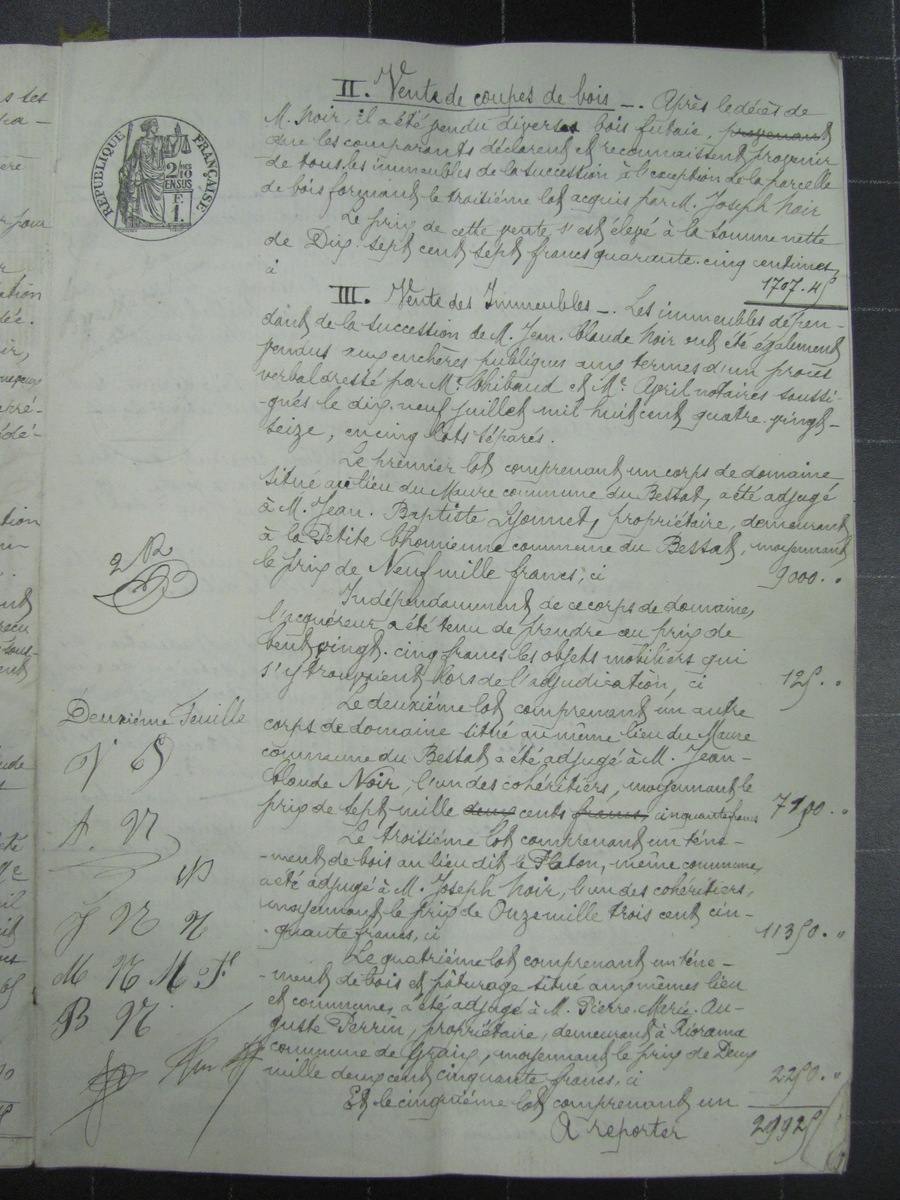 II. Vente de coupes de bois _. Après le décès de
M. Noir, il a été vendu divers bois futaie, provenant
que les comparants déclarent et reconnaissent provenir
de tous les immeubles de la succession à l'exception de la parcelle
de bois formant le troisième lot acquis par M. Joseph Noir
Le prix de cette vente s'est élevé à la somme nette
de Dix. sept cent sept francs quarante. cinq centimes,
à 1707.45
III. Vente des Immeubles _. Les immeubles dépen-
dant de la succession de M. Jean. Claude Noir ont été également
vendus aux enchères publiques aux termes d'un procès
verbal dressé par Me. Thibaud et Me. April notaires soussi-
-gnés le dix. neuf juillet mil huit cent quatre. vingt-
seize, en cinq lots séparés.
Le premier lot comprenant un corps de domaine
situé au lieu du Maure commune du Bessat, a été adjugé
à M. Jean. Baptiste Lyonnet, propriétaire, demeurant
à la Petite Chomienne commune du Bessat, moyennant
le prix de Neuf mille francs, ci 9000. "
Indépendamment de ce corps de domaine,
l'acquéreur a été tenu de prendre au prix de
Cent vingt. cinq francs les objets mobiliers qui
s'y trouvaient lors de l'adjudication, ci 125. "
Le deuxième lot comprenant un autre
corps de domaine situé au même lieu du Maure
commune du Bessat a été adjugé à M. Jean-
Claude Noir, l'un des cohéritiers, moyennant le
prix de sept mille deux cents francs, cinquante francs
Le troisième lot comprenant un téne-
-ment de bois au lieu dit le Platon, même commune,
a été adjugé à M. Joseph Noir, l'un des cohéritiers,
moyennant le prix de Onze mille trois cent cin-
-quante francs, ci 11350. "
Le quatrième lot comprenant un téne-
-ment de bois et pâturage situé aux mêmes lieu
et commune, a été adjugé à M. Pierre. Marie. Au-
guste Perrin, propriétaire, demeurant à
commune de Graix, moyennant le prix de Deux
mille deux cent cinquante francs, ci 2250. "
Et le cinquième lot comprenant un
A reporter 29925
RÉPUBLIQUE FRANÇAISE
2/10
EN SUS
F.
1.
Deuxième Feuille
A. N
N
J N N
M N M F
B N